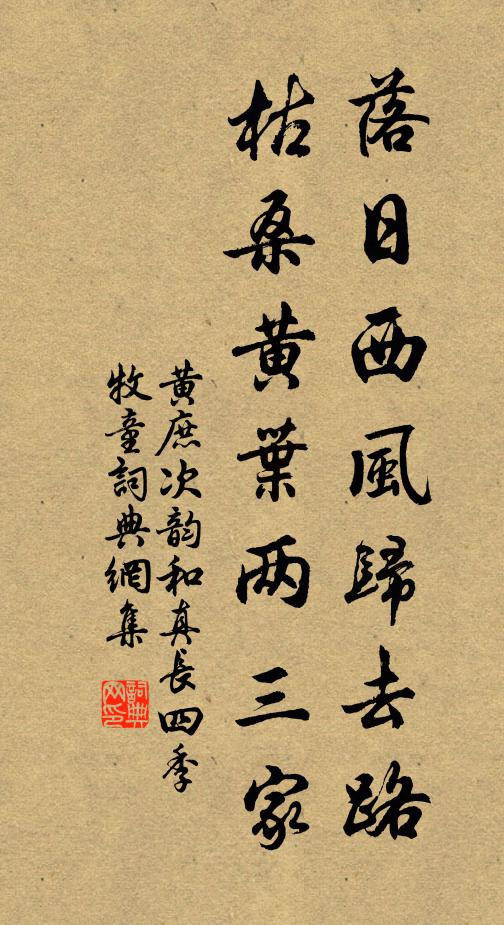 落日西風歸去路
枯桑黃葉两三家
黃庶次韵和真長四季
牧童詞典網集
詞典网印